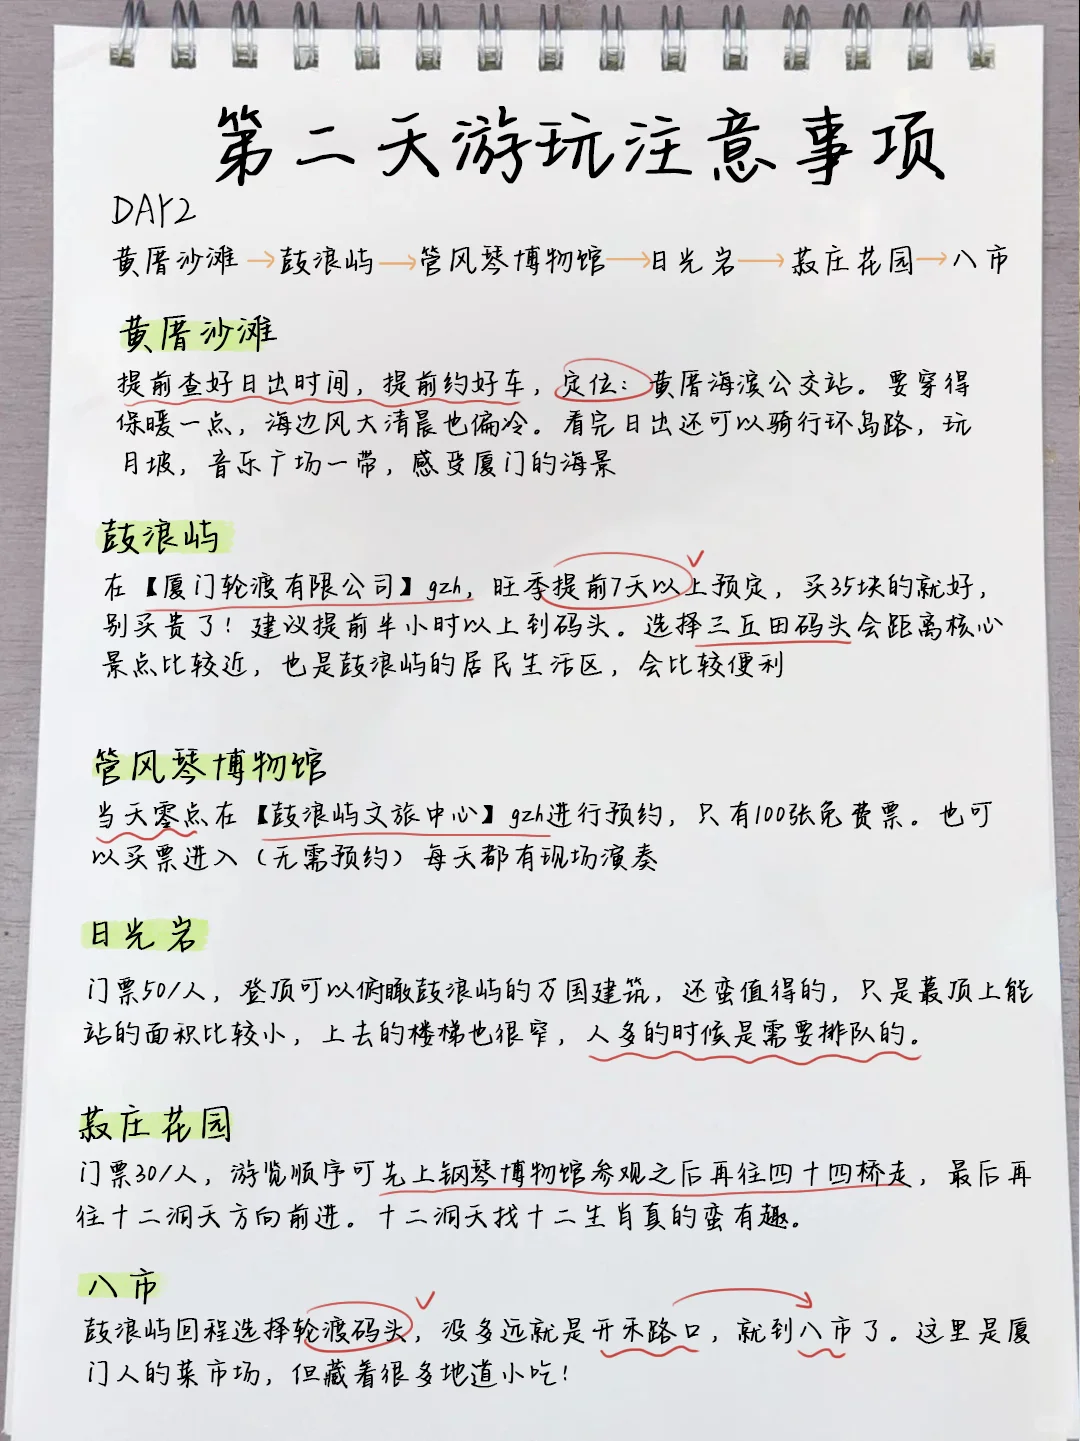 第二天游玩注意事项
DAY2
黄厝沙滩→鼓浪屿→管风琴博物馆→日光岩→菽庄花园→八市
黄厝沙滩
提前查好日出时间，提前约好车，定位：黄厝海滨公交站。要穿得
保暖一点，海边风大清晨也偏冷。看完日出还可以骑行环岛路，玩
月坡，音乐广场一带，感受厦门的海景
鼓浪屿
在【厦门轮渡有限公司】gzh，旺季提前7天以上预定，买35块的就好，
别买贵了！建议提前半小时以上到码头。选择三丘田码头会距离核心
景点比较近，也是鼓浪屿的居民生活区，会比较便利
管风琴博物馆
当天零点在【鼓浪屿文旅中心】gzh进行预约，只有100张免费票。也可
以买票进入（无需预约）每天都有现场演奏
日光岩
门票50/人，登顶可以俯瞰鼓浪屿的万国建筑，还蛮值得的，只是最顶上能
站的面积比较小，上去的楼梯也很窄，人多的时候是需要排队的。
菽庄花园
门票30/人，游览顺序可先上钢琴博物馆参观之后再往四十四桥走，最后再
往十二洞天方向前进。十二洞天找十二生肖真的蛮有趣。
八市
鼓浪屿回程选择轮渡码头，没多远就是开禾路口，就到八市了。这里是厦
门人的菜市场，但藏着很多地道小吃！